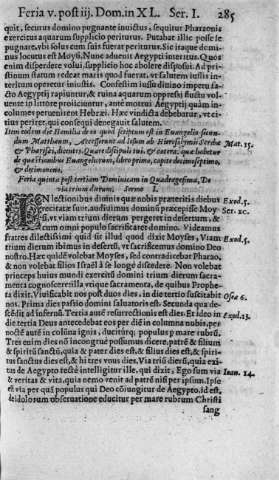 Feria v. post iij. Dom. in XL. Ser. I. 285
quit, seruus domino pugnante inuictus, sequitur Pharaonis
exercitus aquarum supplicio periturus. Putabat ille posse se
pugnare, vbi solus cum suis fuerat periturus. Sic itaque domini
locutus est Moysi. Nunc aduenit Aegypti interitus. Quos
enim disperdere volui, supplicio hoc abolere disposui. Ad
pristinum statum redeat maris quod fuerat, vt salutem iustis in-
teritum operetur iniustis. Confestim
sto Aegyptij rapiuntur, & ruina aquarum oppressi fluctu vol-
uente in littore proiiciuntur, ante mortui Aegyptij quàm in-
columes peruenirent Hebraei. Hac vindicta debebatur, vt ci-
tius periret, qui consequi denegauit salutem.
Item eodem die Homilia de eo quod scriptum est in Euangelio secun-
dum Matthaeum, Accesserunt ad Iesum ab Hierosolymis Scribae Mat. 15.
& Pharisaei, dicentes, Quare discipuli tui, & caetera: quae habetur
de quaestionibus Euangeliorum, libro primo, capite decimoseptimo,
& decimonono.
Feria quinta post tertiam Dominicam in Quadragesima, De
via trium dierum. Sermo I.
IN lectionibus diuinis quae nobis praeteritis diebus Exod. 5.
recitatae sunt, audiuimus dominum praecepisse Moy- Ser. 10.
si, vt viam trium dierum pergeret in desertum, &
cum omni populo sacrificaret domino. Videamus
fratres dilectissimi quid sit illud quod dixit Moyses, Viam Exod. 5.
trium dierum ibimus in deserto, vt sacrificemus domino Deo
nostro. Haec quidē volebat Moyses, sed contradicebat Pharao,
& non volebat filios Israël à se longè discedere. Non volebat
princeps huius mundi exercitū domini trium dierum sacra-
menta cognoscere illa vtique sacramenta, de quibus Prophe-
ta dixit, Viuificabit nos post duos dies, in die tertio suscitabit Osee 6.
nos. Prima dies passio domini saluatoris est. Secunda qua de-
scēdit ad infernū. Tertia autē resurrectionis est dies. Et ideo in Exod. 13.
die tertia Deus antecedebat eos per diē in columna nubis, per
noctē autē in colūna ignis, ducitúrq; populus per mare rubrū.
Tres enim dies nō incongruè possumus dicere, patrē & filium
& spiritū sanctū, quia & pater dies est, & filius dies est, & spiri-
tus sanctus dies est, & hi tres vnus dies. Via triū dierū, quia exi-
tus de Aegypto rectè intelligitur ille, qui dixit, Ego sum via Ioan. 14.
& veritas & vita, quia nemo venit ad patrē nisi per ipsum. Ipse
est via per quā populus qui Deo cōiungitur de Aegypto, id est,
de idolorum obseruatione educitur per mare rubrum Christi
sang